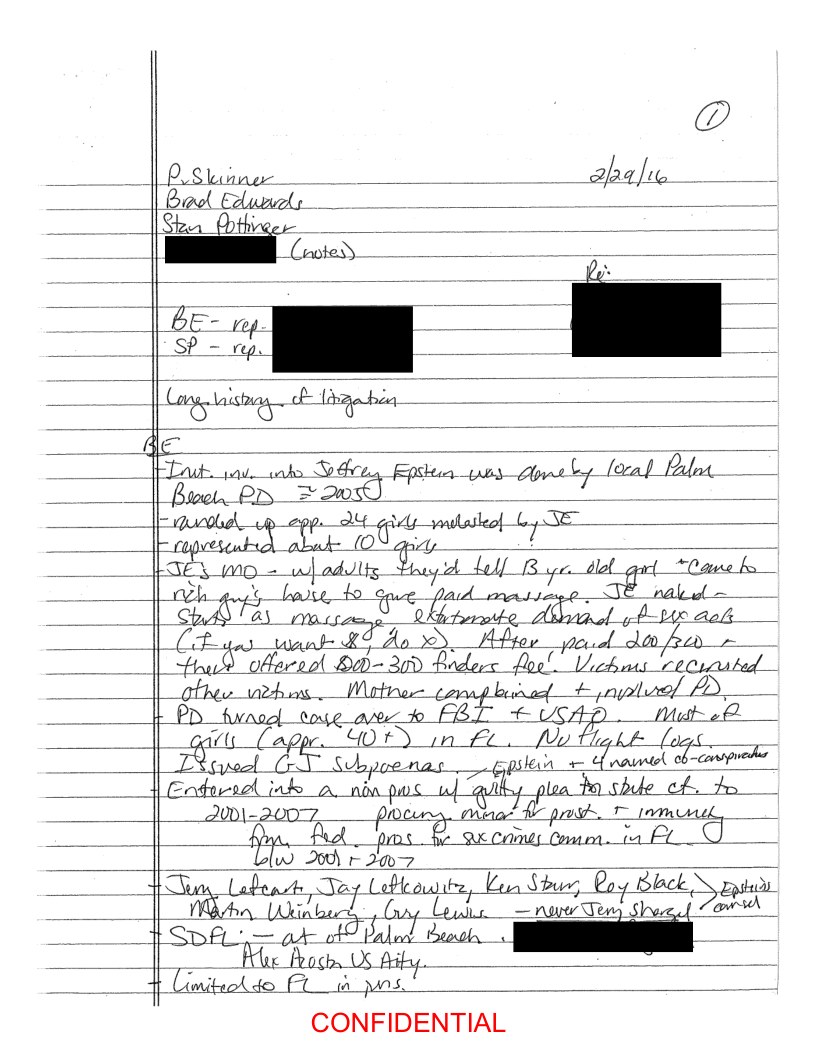 1
P. Skinner 2/29/16
Brad Edwards
Stan Pottinger
(notes)
Re:
BE - rep.
SP - rep.
Long history of litigation
BE
- Init. inv. into Jeffrey Epstein was done by local Palm
Beach PD ≅ 2005
- rounded up app. 24 girls molested by JE
- represented about 10 girls
- JE's MO - w/ adults they'd tell 13 yr. old girl "Come to
rich guy's house to give paid massage. JE naked -
starts as massage demand of sex acts
(if you want $, do x). After, paid 200/300 -
then offered 200-300 finders fee. Victims recruited
other victims. Mother complained + involved PD.
- PD turned case over to FBI + USAO. Most of
girls (appr. 40+) in FL. No flight logs.
Issued GJ subpoenas. Epstein + 4 named co-conspirators
- Entered into a non pros w/ guilty plea to state ct. to
2001-2007 procuring minor for prost. + immunity
from fed. pros. for sex crimes comm. in FL
b/w 2001 + 2007
- Jerry Lefcort, Jay Lefkowitz, Ken Starr, Roy Black, Epstein's
Martin Weinberg, Guy Lewis - never Jerry Shargel counsel
- SDFL - at of Palm Beach.
Alex Acosta US Atty.
- Limited to FL in
CONFIDENTIAL